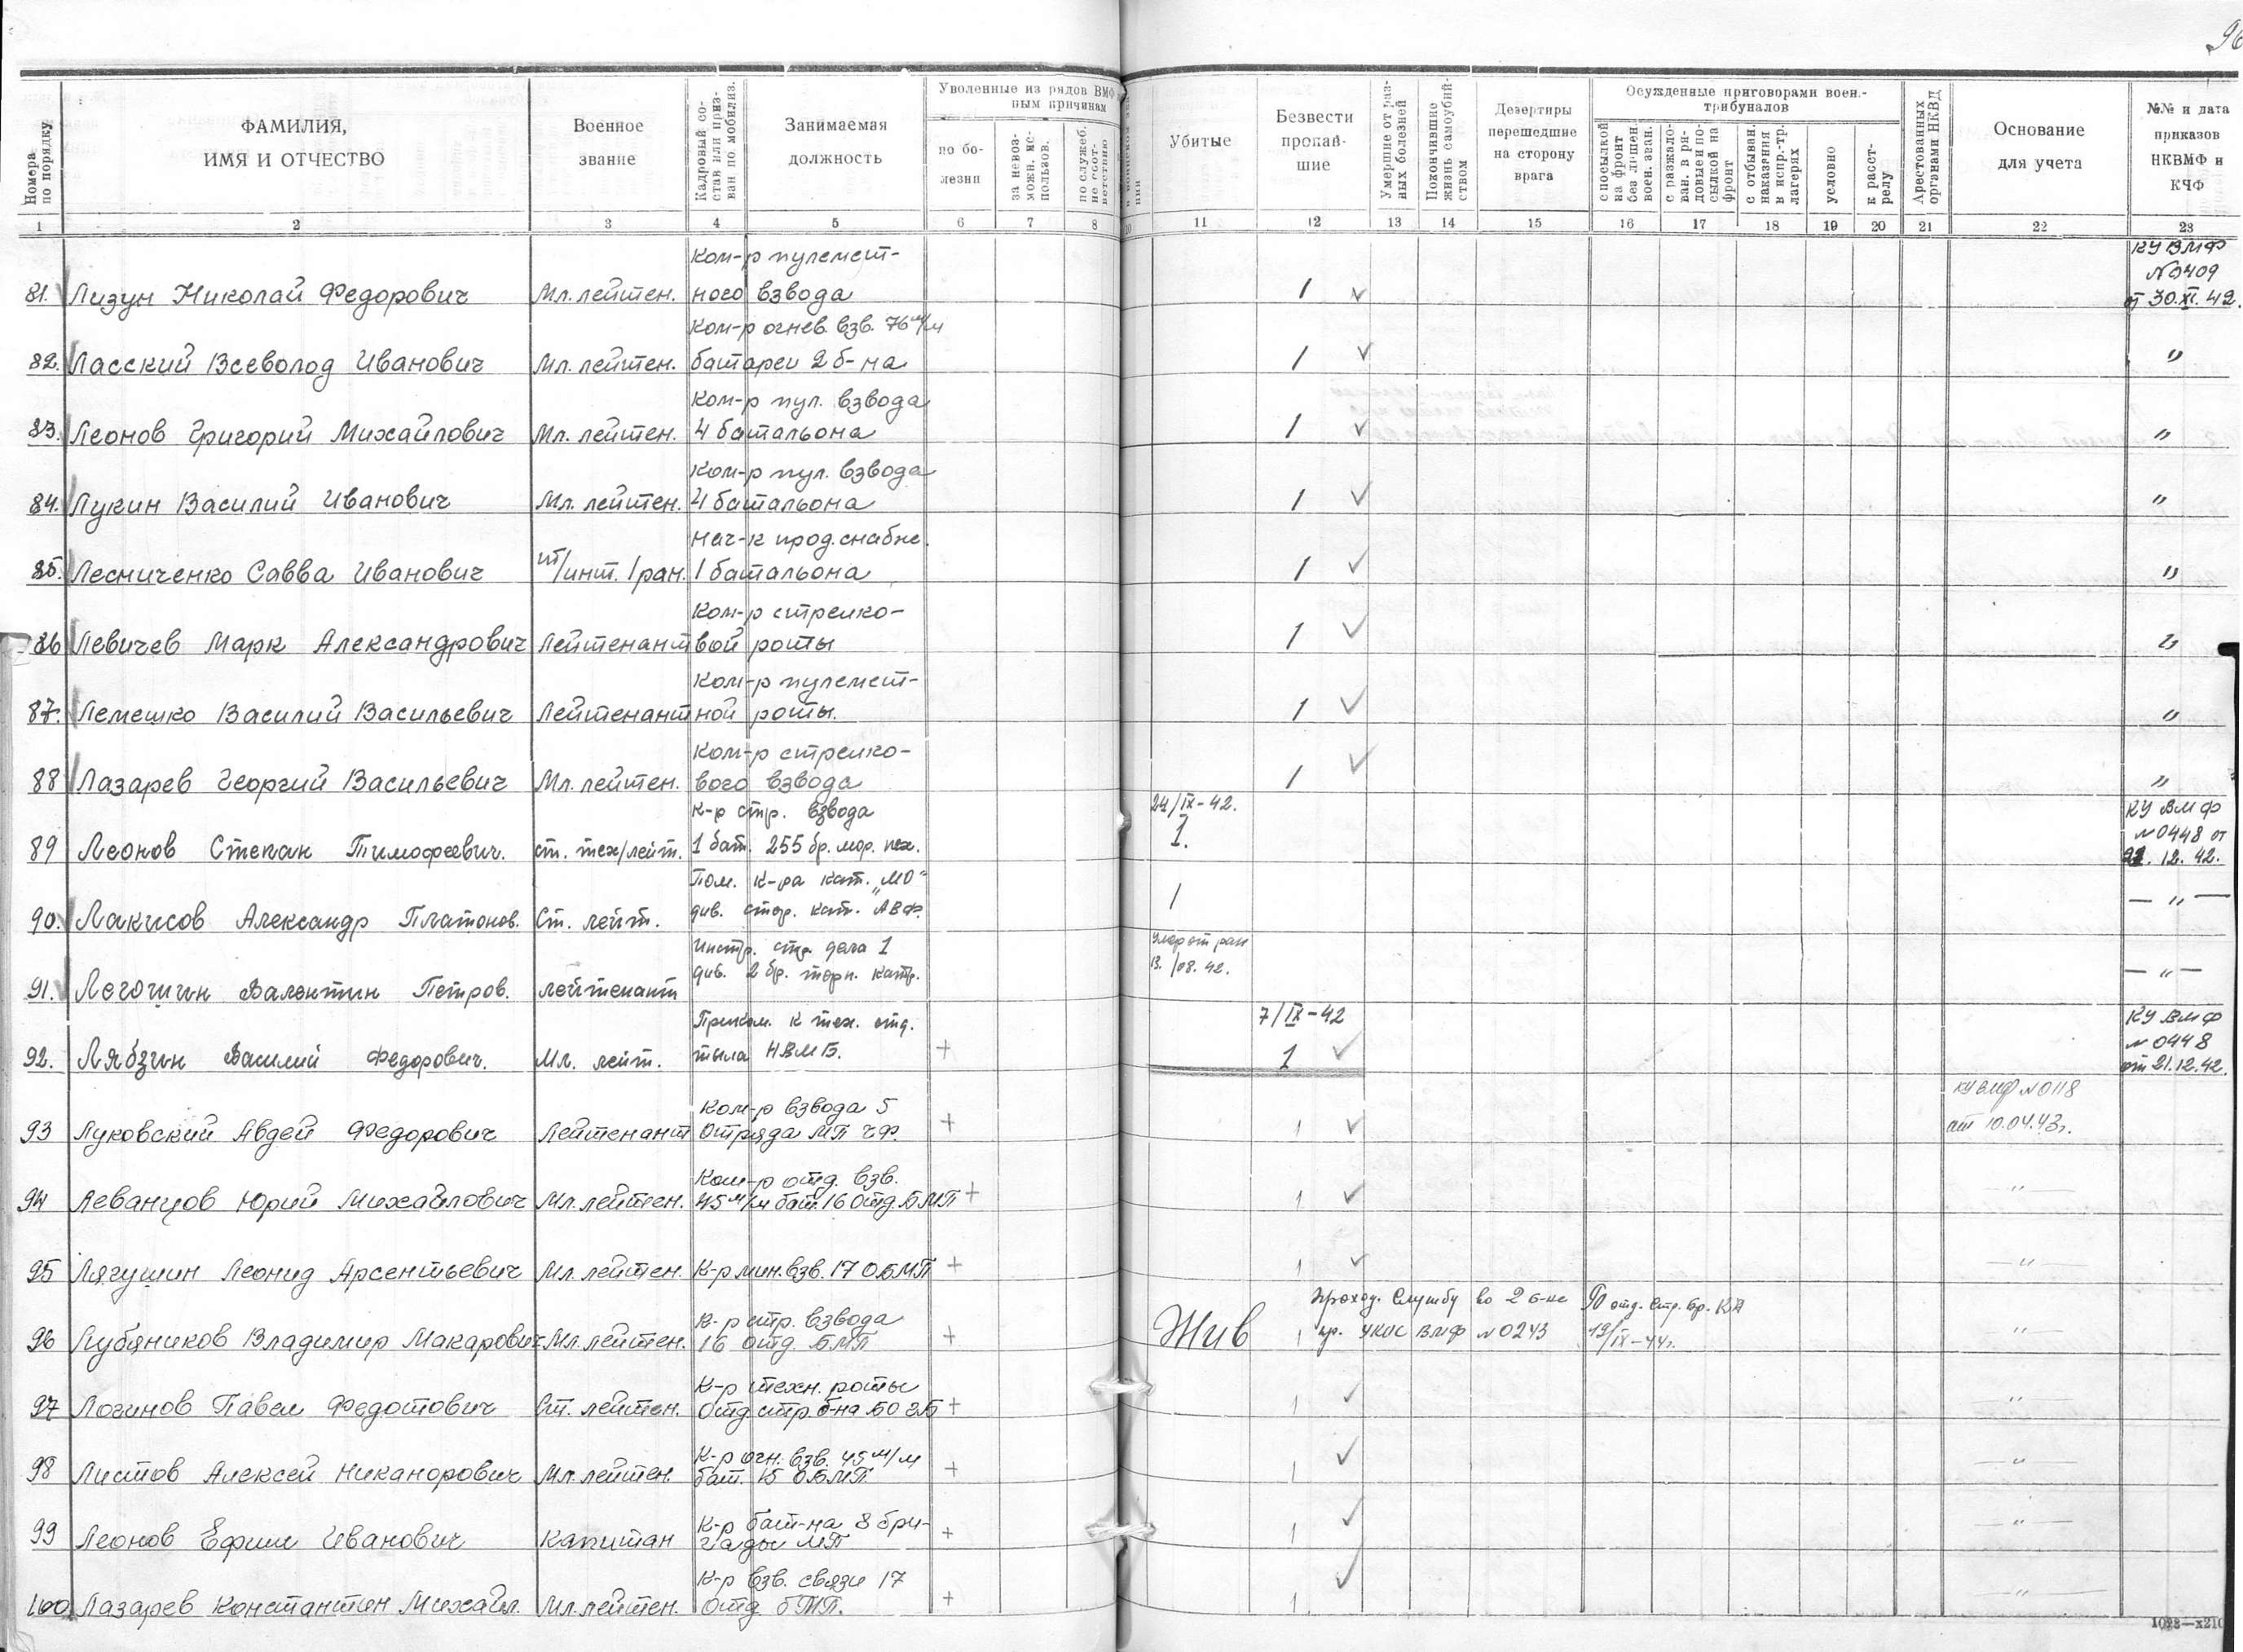 96
Номера по порядку
ФАМИЛИЯ,
ИМЯ И ОТЧЕСТВО
Военное
звание
Кадровый со-
став или приз-
ван по мобилиз.
Занимаемая
должность
Уволенные из рядов ВМФ
ным причинам
по бо-
лезни
за невоз-
можн. ис-
пользов.
по служеб.
не соот-
ветствию
Убитые
Безвести
пропав-
шие
Умершие от раз-
ных болезней
Покончившие
жизнь самоубий-
ством
Дезертиры
перешедшие
на сторону
врага
Осужденные приговорами воен.-
трибуналов
с посылкой
на фронт
без лишен.
воен. зван.
с разжало-
ван. в ря-
довые и по-
сылкой на
фронт
с отбыван.
наказания
в испр.-тр.
лагерях
условно
к расст-
релу
Арестованных
органами НКВД
Основание
для учета
№№ и дата
приказов
НКВМФ и
КЧФ
1 2 3 4 5 6 7 8 10 11 12 13 14 15 16 17 18 19 20 21 22 23
Ком-р пулемет- КУ ВМФ
№0409
81. Лизун Николай Федорович Мл. лейтен. ного взвода 1 от 30.XI.42.
Ком-р огнев. взв. 76 м/м
82. Ласский Всеволод Иванович Мл. лейтен. батареи 2 б-на 1 "
Ком-р пул. взвода
83. Леонов Григорий Михайлович Мл. лейтен. 4 батальона 1 "
Ком-р пул. взвода
84. Лукин Василий Иванович Мл. лейтен. 4 батальона 1 "
Нач-к прод. снабже.
85. Лесниченко Савва Иванович /инт. 1 ран. 1 батальона 1 "
Ком-р стрелко-
86 Левичев Марк Александрович Лейтенант вой роты 1 "
Ком-р пулемет-
87. Лемешко Василий Васильевич Лейтенант ной роты. 1 "
Ком-р стрелко-
88 Лазарев Георгий Васильевич Мл. лейтен. вого взвода 1 "
К-р стр. взвода 24/IX-42. КУ ВМФ
89 Леонов Степан Тимофеевич. ст. тех/лейт. 1 бат. 255 бр. мор. пех. 1. №0448 от
21. 12. 42.
Пом. к-ра кат. „МО"
90. Лакисов Александр Платонов. Ст. лейт. див. стор. кат. АВФ. 1 — " —
Инстр. стр. дела 1 Умер от ран
91. Легошин Валентин Петров. лейтенант див. 2 бр. торп. катр. 13./08. 42. — " —
Приком. к тех. отд. 7/IX-42 КУ ВМФ
92. Лябзин Василий Федорович. Мл. лейт. тыла НВМБ. + 1 №0448
от 21.12.42.
Ком-р взвода 5 КУ ВМФ №0118
93 Луковский Авдей Федорович Лейтенант отряда МП ЧФ. + 1 от 10.04.43г.
Ком-р отд. взв.
94 Леванцов Юрий Михайлович Мл. лейтен. 45 м/м бат. 16 отд. БМП + 1 — " —
95 Лягушин Леонид Арсентьевич Мл. лейтен. К-р мин. взв. 17 ОБМП + 1 — " —
К-р стр. взвода Проход. службу во 2 б-не 90 отд. стр. бр. КА
96 Лубяников Владимир Макарович Мл. лейтен. 16 отд. БМП + Жив 1 пр. УКОС ВМФ №0243 19/IX-44г. "
К-р техн. роты
97 Логинов Павел Федотович Ст. лейтен. отд стр. б-на + 1 — " —
К-р огн. взв. 45 м/м
98 Листов Алексей Никанорович Мл. лейтен. бат. 15 ОБМП + 1 — " —
К-р бат-на 8 бри-
99 Леонов Ефим Иванович капитан гады МП + 1 — " —
К-р взв. связи 17
100 Лазарев Константин Михайл. Мл. лейтен. отд. БМП. + 1 — " —